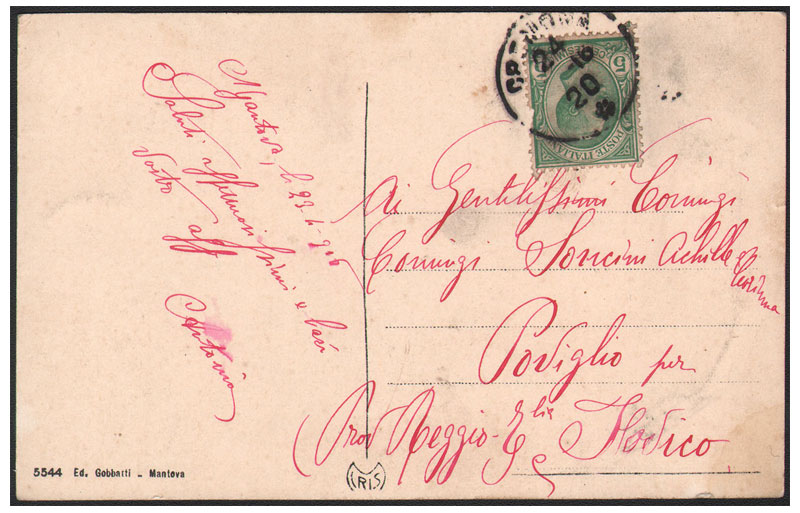 Mantova, li 23-4-916
Saluti affettuosissimi e baci
Vostro aff
Antonio
Ai Gentilissimi Coniugi
Coniugi Soncini Achille e
Poviglio per
Prov Reggio-Elia Flodico
5544 Ed. Gobbatti - Mantova
IRIS
CREMONA
24
-16
20
5
POSTE ITALIANE